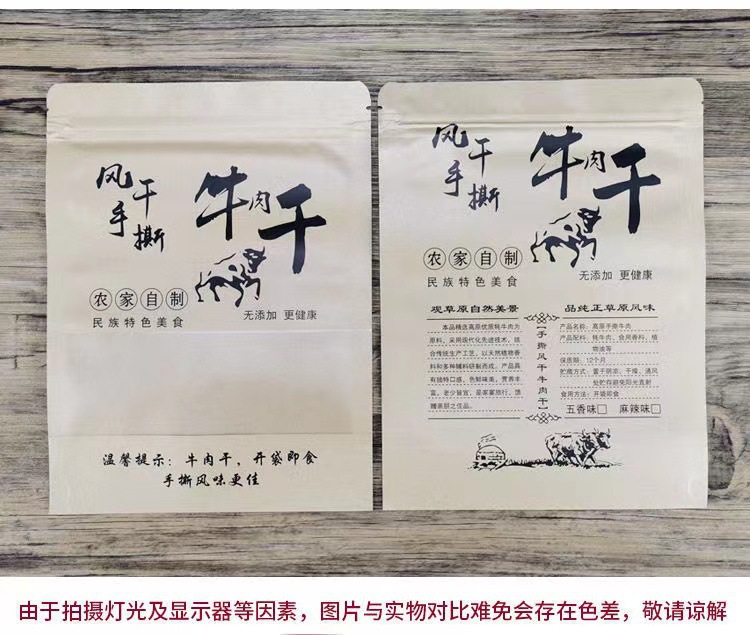 风干
手撕
牛肉干
农家自制
民族特色美食
无添加 更健康
温馨提示：牛肉干，开袋即食
手撕风味更佳
风干
手撕
牛肉干
农家自制
民族特色美食
无添加 更健康
观草原自然美景
本品精选高原优质牦牛肉为
原料，采用现代化先进技术，结
合传统生产工艺，以天然植物香
料和多种辅料研制而成。产品具
有独特口感，色鲜味美，营养丰
富，老少皆宜，是家宴旅行、馈
赠亲朋之佳品。
【手撕风干牛肉干】
品纯正草原风味
产品名称：高原手撕牛肉
产品配料：牦牛肉、食用香料、植
物油等
保质期：12个月
贮藏方式：置于阴凉、干燥、通风
处贮存避免阳光直射
食用方法：开袋即食
五香味□ 麻辣味□
由于拍摄灯光及显示器等因素，图片与实物对比难免会存在色差，敬请谅解